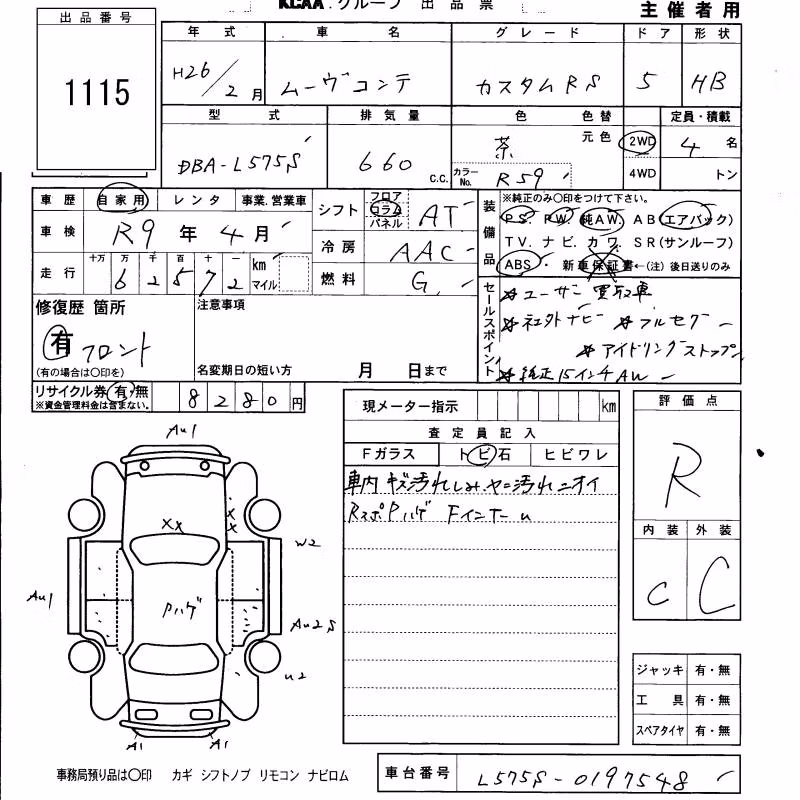 KCAA.グループ 出品票
主催者用
出品番号
1115
年式 車名 グレード ドア 形状
H26/2月 ムーヴコンテ カスタムRS 5 HB
型式 排気量 色 色替 定員・積載
DBA-L575S 660 C.C. 茶 元色 2WD 4名
カラーNo. R59 4WD トン
車歴 自家用 レンタ 事業.営業車
車検 R9年4月
走行 十万 万 千 百 十 一
62572 km マイル
シフト フロア コラム パネル AT
冷房 AAC
燃料 G
装備品
※純正のみ〇印をつけて下さい。
PS. PW. 純AW. AB(エアバック)
TV. ナビ. カワ. SR(サンルーフ)
ABS・ 新車保証書←(注)後日送りのみ
セールスポイント
☆ユーザー買取車
☆社外ナビ ☆フルセグ
☆アイドリングストップ
☆純正15インチAW
修復歴 箇所
有 フロント
(有の場合は〇印を)
注意事項
名変期日の短い方 月 日まで
リサイクル券 有・無 8280円
※資金管理料金は含まない。
現メーター指示 km
査定員記入
Fガラス トビ石 ヒビワレ
車内キズ汚れしみ、ヤニ汚れニオイ
RスポPハゲ Fインナーu
評価点
R
内装 外装
C C
AU1
XX
X
X
W2
AU1
Pハゲ
AU2S
U2
A1 A1
ジャッキ 有・無
工具 有・無
スペアタイヤ 有・無
事務局預り品は〇印 カギ シフトノブ リモコン ナビロム
車台番号 L575S-0197548